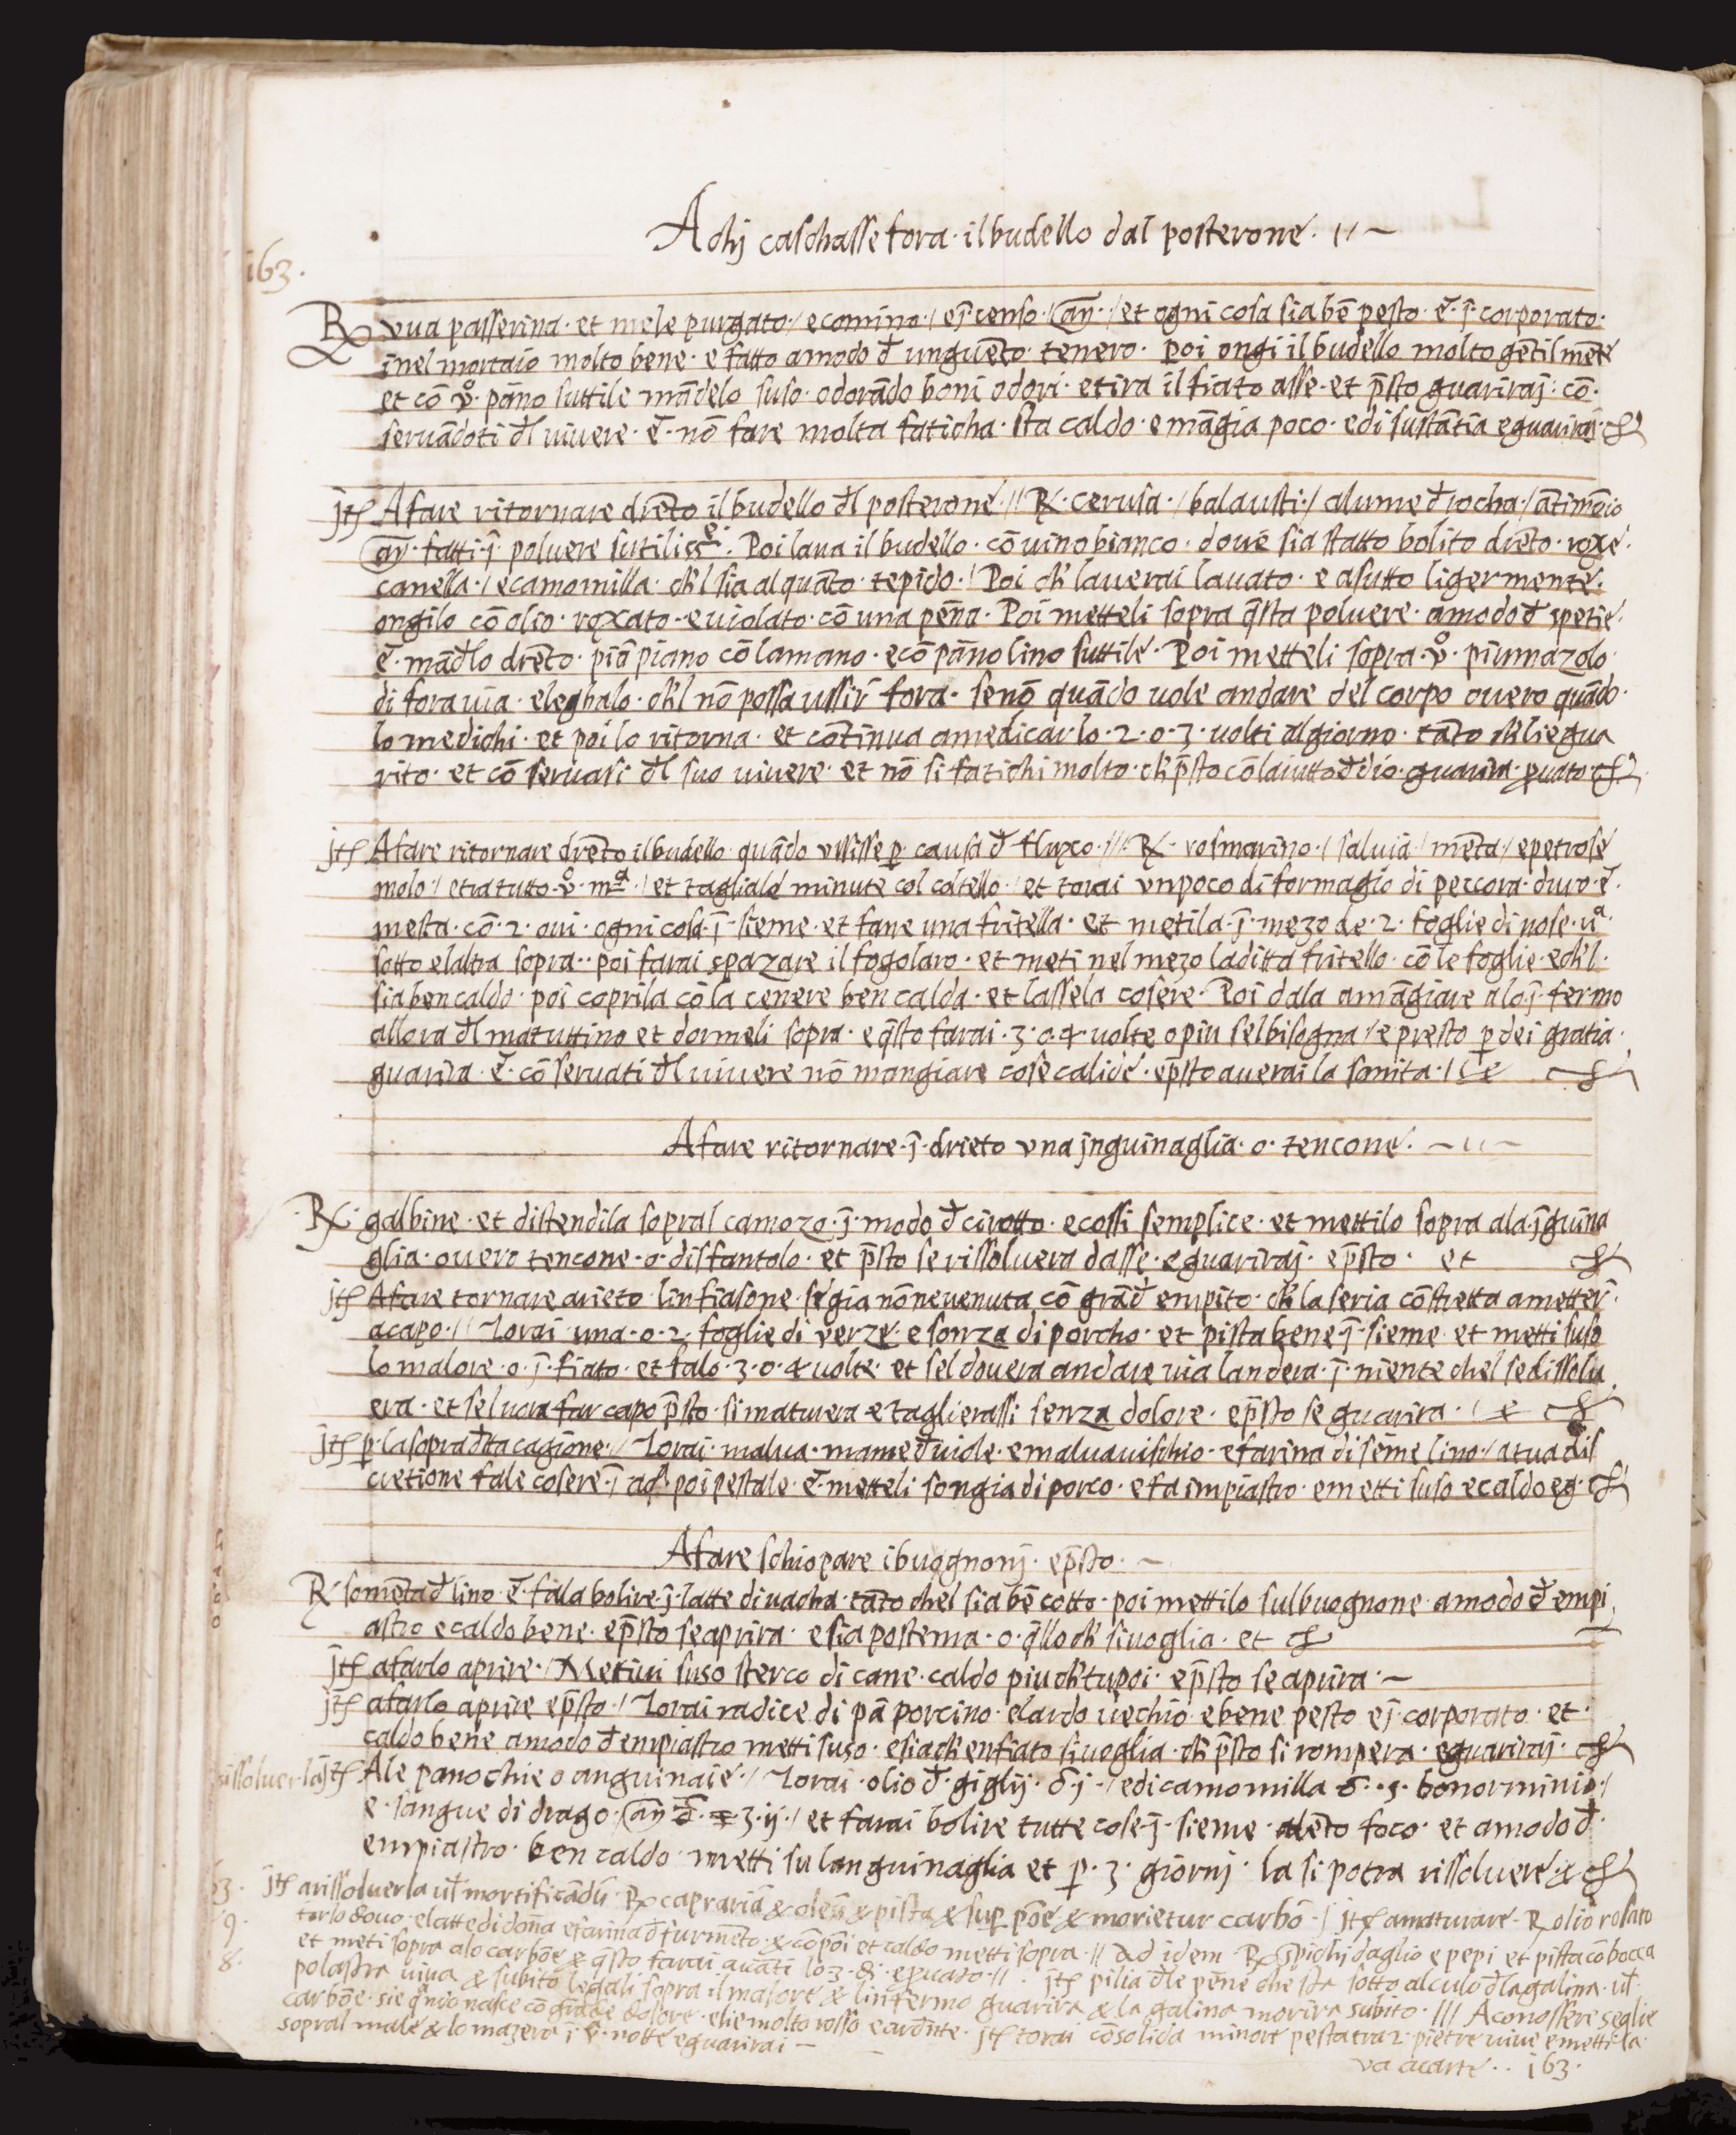 Achj caschasse fora · il budello dal posterone · //~
163.
Rx vua passerina · et mele purgato / e comino / ej̄ censo / an̄ · / et ogni cosa sia bē pesto · ē · j̄ · corporato ·
inel mortaio molto bene · e fatto amodo đ unguēto · tenero · Poi ongi il budello molto gētil mēte
et cō v° · pāno suttile · māndelo suso · odorādo boni odori · et ira il fiato asse · et p̄sto guariraj · cō ·
seruādoti đl viuere · ē · nō fare molta faticha · sta caldo · e māgia poco · e di sustātia e guariraj ·
jtē A fare ritornare drēto il budello đl posterone // Rx · cerusa · / balausti · / alume đ rocha · / ātimōio
an̄ · fatti · j̄ · poluere sutiliss̄e · Poi laua il budello · cō uino bianco · doue sia statto bolito drēto · roxe ·
canella · / e camomilla · ch'l sia alquāto · tepido · / Poi ch' lauerai lauato · e asutto ligermente ·
ongilo cō olio · roxato · e uiolato · cō una pēna · Poi metteli sopra q̄sta poluere · amodo đ spetie ·
ē · mādlo drēto · piā piano cō la mano · e cō pāno lino suttile · Poi metteli sopra · v° · piumazolo
di fora uia · e leghalo · ch'l nō possa ussir̄ fora · senō quādo uole andare del corpo ouero quādo ·
lo medichi · et poi lo ritorna · et cōtinua a medicarlo · 2 · o · 3 · uolti al giorno · tāto ch' lie gua
rito · et cō seruasi đl suo uiuere · et nō si fatichi molto · ch' p̄sto cō laiutto đ dio · guarira · p̱uato ·
jtē A fare ritornare drēto il budello · quādo ussisse p̱ causa đ fluxo · // Rx · rosmarino · / saluia / mēta / e petrose
molo / etra tutto · v° · mª · / et tagliale minute col coltello · / et torai vn poco di formagio di peccora · duro · ē ·
mesta · cō · 2 · oui · ogni cosa · j̄ · sieme · et fane una fritella · et metila · j̄ · mezo de · 2 · foglie di nose · uª ·
sotto e laltra sopra · · poi farai spazare il fogolaro · et meti nel mezo la ditta fritello · cō le foglie · e ch'l ·
sia ben caldo · poi coprila cō la cenere ben calda · et lassela cosere · Poi dala a māgiare alo j̄ · fermo
allora đl matuttino et dormeli sopra · e q̄sto farai · 3 · o · 4 · uolte o piu sel bisogna / e presto p̱ dei gratia ·
guarira · ē · cō seruati đl uiuere nō mangiare cose calide · e p̄sto auerai la sanita · / &
A fare ritornare · j̄ · drieto vna jnguinaglia · o · tencone · ~ // ~
Rx · galbine · et distendila sopral camozo · j̄ · modo đ cirotto · e cossi semplice · et mettilo sopra ala · j̄guina
glia · ouero tencone · o · disfantolo · et p̄sto se rissoluera dasse · e guariraj · e p̄sto · et
jtē A fare tornare arieto linfiasone · se gia nō ne uenuta cō grād empito · ch' la seria cōstretta a metter̄ ·
a capo · // Torai una · o · 2 · foglie di verze · e sonza di porcho · et pista bene · j̄ · sieme · et metti suso
lo malore · o · j̄ · fiato · et falo · 3 · o · 4 uolte · et sel douera andare uia landera · j̄ · niente chel se dissolu
era · et sel uora far capo p̄sto · si maturera e taglierassi senza dolore · e p̄sto se guarira · / &
jtē p̱ la sopra đtta cagione · / Torai · malua · mame đ uiole · e maluauischio · e farina di sēme lino · / a tua dis
cretione fale cosere · j̄ aq̄ · poi pestale · ē · metteli songia di porco · e fa impiastro · e metti suso e caldo eg ·
A fare schiopare i buognonj · e p̄sto · ~
Rx somēta đ lino · ē · fala bolire · j̄ · latte di uacha · tāto chel sia bē cotto · poi mettilo sul buognone · amodo đ empi
astro e caldo bene · e p̄sto se aprira · e sia postema · o · q̄llo ch' si uoglia · et
jtē a farlo aprire · / Metiui suso sterco di cane · caldo piu ch' tu poi · e p̄sto se aprira · ~
jtē a farlo aprire e p̄sto · / Torai radice di pā porcino · e lardo uechio · e bene pesto e j̄ · corporato · et ·
caldo bene amodo đ empiastro metti suso · e sia ch' enfiato si uoglia · ch' p̄sto si rompera · e guariraj ·
jtē Ale panochie o anguinaie · / Torai · olio đ · giglij · · j · / e di camomilla · · bonorminio · /
e · sangue di drago · an̄ · 3 · ij · / et farai bolire tutte cose · j̄ · sieme · a lēto foco · et amodo đ ·
empiastro · ben caldo · metti su languinaglia et p̱ · 3 · giornj · la si potra rissoluere · &
jtē a rissoluerla ul̄ mortificādū Rx caprariā & oleū & pista & sup̱ pōe & morietur carbō · / jtē a maturare · Rx olio rosato
torlo đ ouo · e latte di dōna e farina đ furmēto · & cōpōi et caldo metti sopra · // Ad idem Rx spichi daglio e pepi et pista cō bocca
et meti sopra alo carbōe & q̄sto farai auāti lo 3 · di · e p̱uato · // · jtē pilia đle pēne che sta sotto al culo đla galina · ul̄ ·
polastra uiua & subito legali sopra il malore & linfermo guarira & la galina morira subito · /// A conossere se glie
carbōe · si e q̄n̄ io nasce cō grāde dolore · e lie molto rosso e ardēte · jtē torai cōsolida minore pesta tra 2 · pietre uiue e mettila
sopral male & lo mazera j̄ v° · notte e guarirai ~
va a carte · · 163 ·